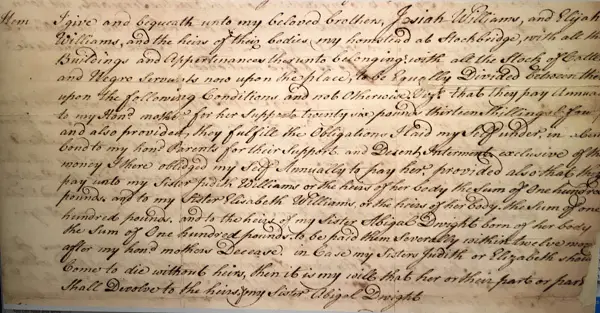 Item I give and bequeath unto my beloved brothers, Josiah Williams, and Elijah
Williams, and the heirs of their bodies, my homstead at Stockbridge, with all the
Buildings and Appertinances thereunto belonging, with all the Stock of Cattle
and Negro Servants now upon the place, to be Equally Divided between them
upon the following Conditions and not Otherwise, Vizt that they pay Annua
to my Hond mother for her Support twenty six pounds thirteen Shillings &
and also provided, they fulfill the Obligations I laid my Self under, in a
bond to my hond Parents for their Support and Decent Interment, exclusive of the
money I there obledged my Self Annually to pay her, provided also that they
pay unto my Sister Judith Williams or the heirs of her body the Sum of One hundred
pounds, and to my Sister Elisabeth Williams or the heirs of her body, the Sum of one
hundred pounds, and to the heirs of my Sister Abigal Dwight born of her body
the Sum of One hundred pounds, to be paid them Severally within twelve mon
after my hond mothers Decease, in Case my Sisters Judith or Elizabeth should
Come to die without heirs, then it is my will that her or their part or parts
Shall Devolve to the heirs of my Sister Abigal Dwight